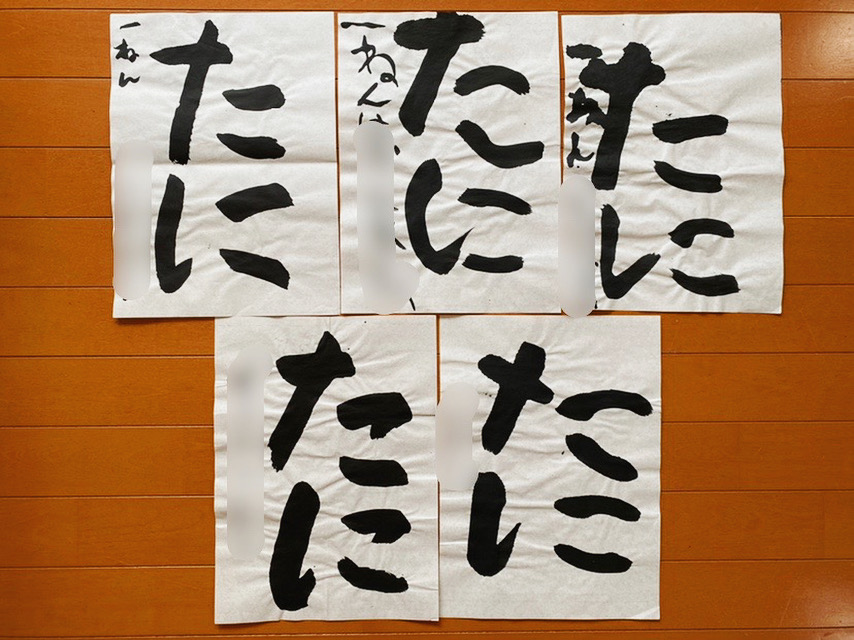 たに
一ねん
たに
一ねん
たに
一ねん
たに
たに